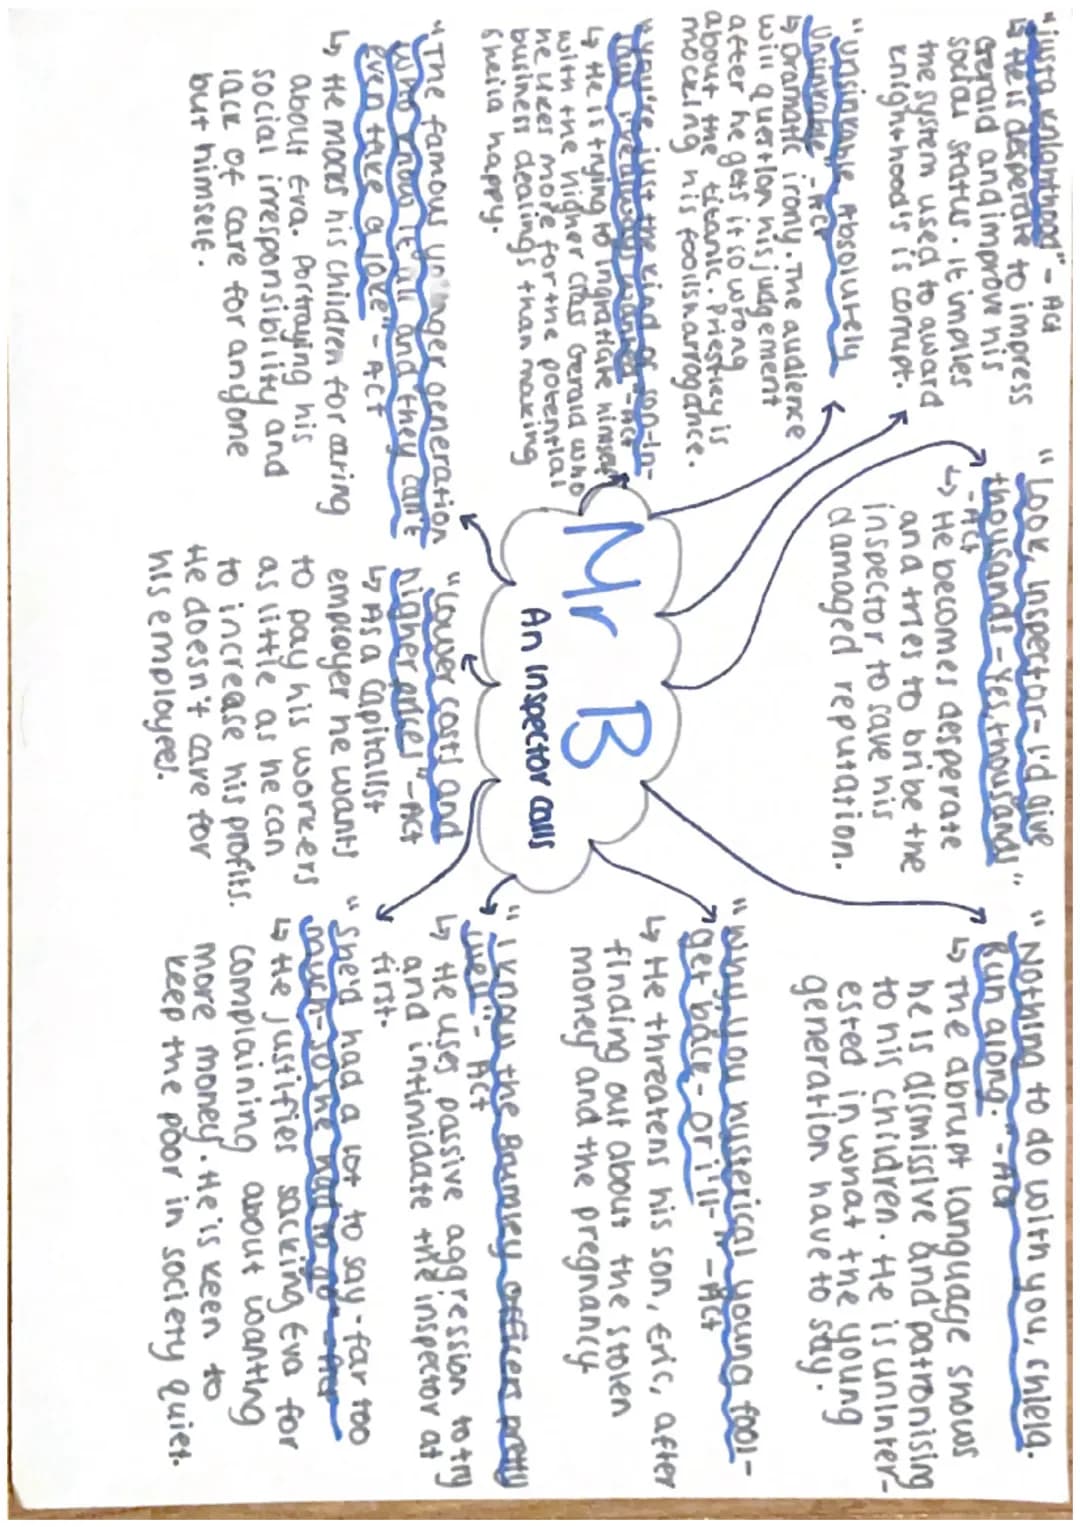 Mr B
An Inspector calls
"just a knighthood" - Act
↳ He is desperate to impress
Gerald and improve his
social status. It implies
the system used to award
knighthood's is corrupt.
"unsinkable, Absolutely
unsinkable" - Act
↳ Dramatic irony. The audience
will question his judgement
after he gets it so wrong
about the titanic. Priestley is
mocking his foolish arrogance.
"you're just the kind of son-in-
law I always wanted" - Act
↳ He is trying to ingratiate himself
with the higher class Gerald who
he likes more for the potential
business dealings than making
Sheila happy.
"The famous younger generation
who know it all and they can't
even take a joke" - Act
↳ He mocks his children for caring
about Eva. Portraying his
social irresponsibility and
lack of care for anyone
but himself.
"Look, Inspector - I'd give
thousands - Yes, thousands"
- Act
↳ He becomes desperate
and tries to bribe the
inspector to save his
damaged reputation.
"Lower costs and
higher prices" - Act
↳ As a capitalist
employer he wants
to pay his workers
as little as he can
to increase his profits.
He doesn't care for
his employees.
"Nothing to do with you, Sheila.
Run along." - Act
↳ The abrupt language shows
he is dismissive and patronising
to his children. He is uninter-
ested in what the young
generation have to say.
"Why, you hysterical young fool -
get back - or i'll -" - Act
↳ He threatens his son, Eric, after
finding out about the stolen
money and the pregnancy
"I know the Brumley officers pretty
well" - Act
↳ He uses passive aggression to try
and intimidate the inspector at
first.
"She'd had a lot to say - far too
much - so she had to go" - Act
↳ He justifies sacking Eva for
complaining about wanting
more money. He is keen to
keep the poor in society quiet.